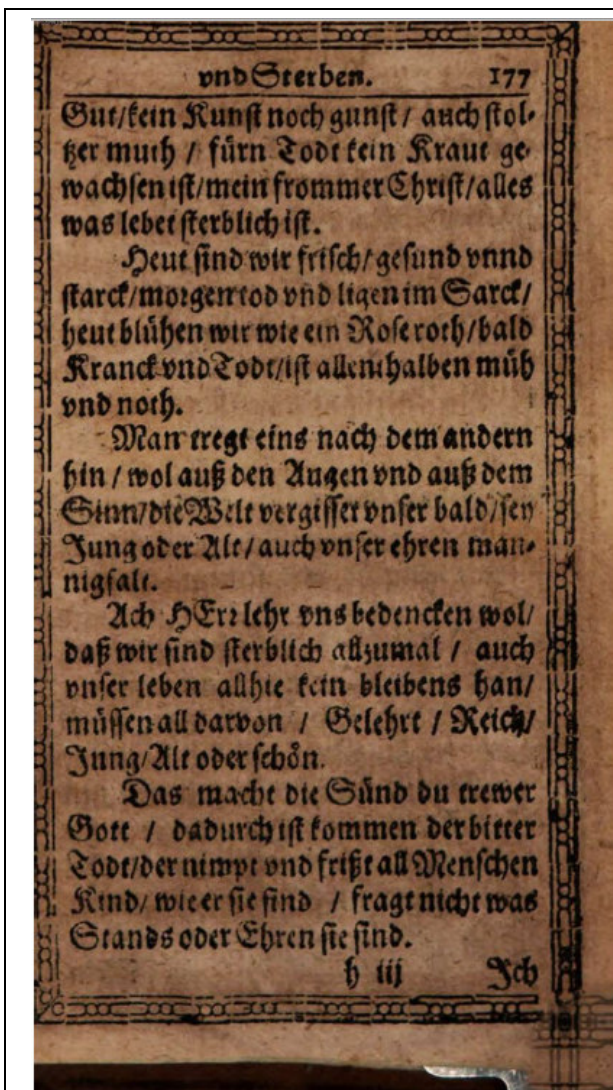 vnd Sterben. 177
Gut/kein Kunst noch gunst / auch stol-
tzer muth / fürn Todt kein Kraut ge-
wachsen ist/mein frommer Christ/alles
was lebet sterblich ist.
Heut sind wir frisch/gesund vnnd
starck/morgen tod vnd ligen im Sarck/
heut blühen wir wie ein Rose roth/bald
Kranck vnd Todt/ist allenthalben müh
vnd noth.
Man tregt eins nach dem andern
hin / wol auß den Augen vnd auß dem
Sinn/die Welt vergisset vnser bald/sey
Jung oder Alt/auch vnser ehren man-
nigfalt.
Ach HErr lehr vns bedencken wol/
daß wir sind sterblich allzumal / auch
vnser leben allhie kein bleibens han/
müssen all darvon / Gelehrt / Reich/
Jung/Alt oder schön.
Das macht die Sünd du trewer
Gott / dadurch ist kommen der bitter
Todt/der nimpt vnd frißt all Menschen
Kind/wie er sie find / fragt nicht was
Stands oder Ehren sie sind.
h iij Jch